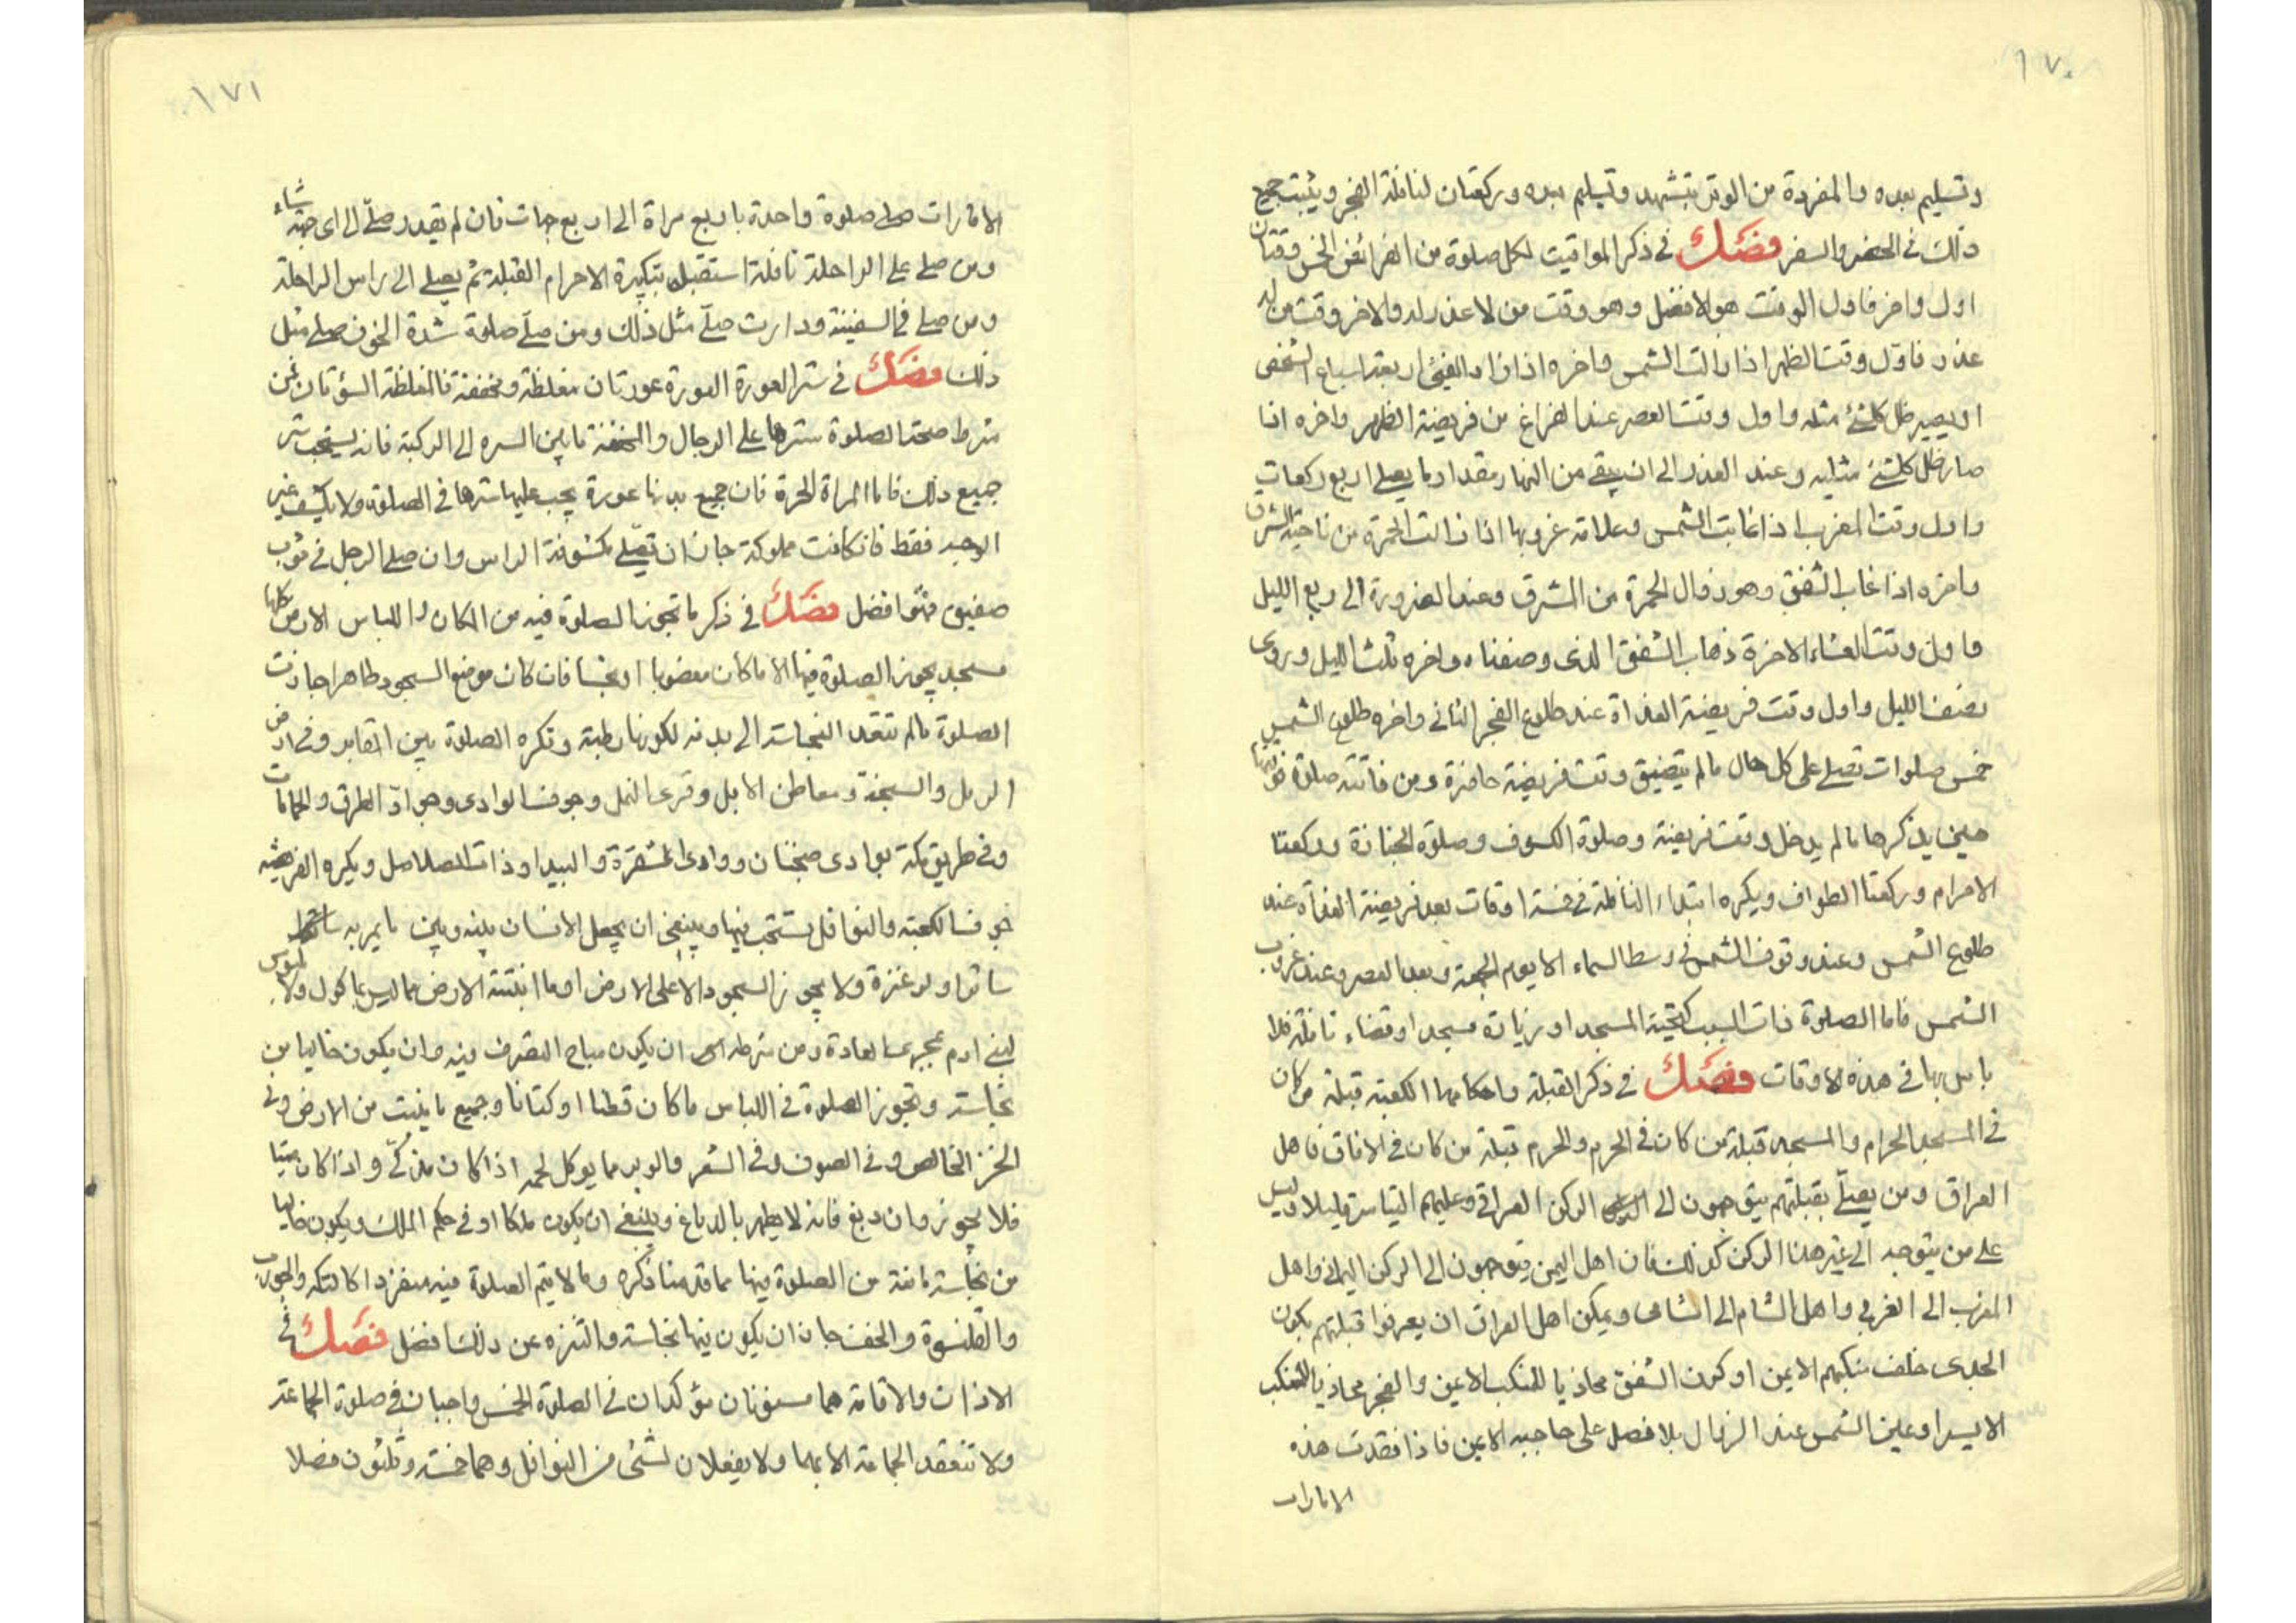 ١٧٠
وتسليم بعده والمفردة من الوتر بتشهد وتسليم بعده وركعتان لنافلة الفجر ويثبت جميع
ذلك في الحضر والسفر فصل في ذكر المواقيت لكل صلوة من الفرائض الخمس وقتان
اول واخر فاول الوقت هو الافضل وهو وقت من لا عذر له والاخر وقت من له
عذر فاول وقت الظهر اذا زالت الشمس واخره اذا زاد الفيئ اربعة اسباع الشخص
او يصير ظل كل شئ مثله واول وقت العصر عند الفراغ من فريضة الظهر واخره اذا
صار ظل كل شئ مثليه وعند العذر الى ان يبقى من النهار مقدار ما يصلي اربع ركعات
واول وقت المغرب اذا غابت الشمس وعلامة غروبها اذا زالت الحمرة من ناحية المشرق
واخره اذا غاب الشفق وهو زوال الحمرة من المشرق وعند الضرورة الى ربع الليل
واول وقت العشاء الاخرة ذهاب الشفق الذى وصفناه واخره ثلث الليل وروى
نصف الليل واول وقت فريضة الغداة عند طلوع الفجر الثاني واخره طلوع الشمس
خمس صلوات تصلى على كل حال ما لم يتضيق وقت فريضة حاضرة ومن فاتته صلوة فوقتها
حين يذكرها ما لم يدخل وقت فريضة وصلوة الكسوف وصلوة الجنازة وركعتا
الاحرام وركعتا الطواف ويكره ابتداء النافلة في خمسة اوقات بعد فريضة الغداة عند
طلوع الشمس وعند وقوف الشمس في وسط السماء الا يوم الجمعة وبعد العصر وعند غروب
الشمس فاما الصلوة ذات السبب كتحية المسجد او زيارة مسجد او قضاء نافلة فلا
باس بها في هذه الاوقات فصل في ذكر القبلة واحكامها الكعبة قبلة من كان
في المسجد الحرام والمسجد قبلة من كان في الحرم والحرم قبلة من كان في الافاق فاهل
العراق ومن يصلّي بقبلتهم يتوجهون الى الركن العراقي وعليهم التياسر قليلا وليس
على من يتوجه الى غير هذا الركن كذلك فان اهل اليمن يتوجهون الى الركن اليماني واهل
المغرب الى الغربي واهل الشام الى الشامى ويمكن اهل العراق ان يعرفوا قبلتهم بكون
الجدى خلف منكبهم الايمن او كون الشفق محاذيا للمنكب الايمن والفجر محاذيا للمنكب
الايسر او عين الشمس عند الزوال بلا فصل على حاجبه الايمن فاذا فقدت هذه
الامارات
١٧١
الامارات صلى صلوة واحدة باربع مراة الى اربع جهات فان لم يقدر صلّى الى اى جهة شاء
ومن صلى على الراحلة نافلة استقبل بتكبيرة الاحرام القبلة ثم يصلى الى راس الراحلة
ومن صلى في السفينة ودارت صلّى مثل ذلك ومن صلّى صلوة شدة الخوف صلى مثل
ذلك فصل في ستر العورة العورة عورتان مغلظة ومخففة فالمغلظة السؤتان فمن
شرط صحة الصلوة سترها على الرجال والمخففة ما بين السره الى الركبة فانه يستحب ستر
جميع ذلك فاما المراة الحرة فان جميع بدنها عورة يجب عليها سترها في الصلوة ولا يكشف غير
الوجه فقط فان كانت مملوكة جاز ان تصلّي مكشوفة الراس وان صلى الرجل في ثوب
صفيق فهو افضل فصل في ذكر ما تجوز الصلوة فيه من المكان واللباس الارض كلها
مسجد يجوز الصلوة فيها الا ما كان مغصوبا او نجسا فان كان موضع السجود طاهرا جازت
الصلوة ما لم تتعد النجاسة الى بدنه لكونها رطبة وتكره الصلوة بين المقابر وفي ارض
الرمل والسبخة ومعاطن الابل وقرى النمل وجوف الوادى وجوادّ الطرق والحمامات
وفي طريق مكة بوادى ضجنان ووادى الشقرة والبيدا وذات الصلاصل ويكره الفريضه
جوف الكعبة والنوافل يستحب فيها وينبغي ان يجعل الانسان بينه وبين ما يمر به
ساترا ولو عنزة ولا يجوز السجود الا على الارض او ما انبتته الارض مما ليس بماكول ولا ملبوس
لبني ادم بمجرى العادة ومن شرطه ان يكون مباح التصرف فيه وان يكون خاليا من
نجاسة وتجوز الصلوة في اللباس ما كان قطنا او كتانا وجميع ما ينبت من الارض وفي
الخز الخالص وفي الصوف وفي الشعر والوبر مما يوكل لحمه اذا كان مذكّى واذا كان ميتا
فلا يجوز وان دبغ فانه لا يطهر بالدباغ وينبغي ان يكون ملكا او في حكم الملك ويكون خاليا
من نجاسة مانعة من الصلوة فيها مما قدمنا ذكره وما لا يتم الصلوة فيه منفردا كالتكة والجورب
والقلنسوة والخف جاز ان يكون فيها نجاسة والتنزه عن ذلك افضل فصل في
الاذان والاقامة هما مسنونان مؤكدان في الصلوة الخمس واجبان في صلوة الجماعة
ولا تنعقد الجماعة الا بهما ولا يفعلان لشئ من النوافل وهما خمسة وثلثون فصلا